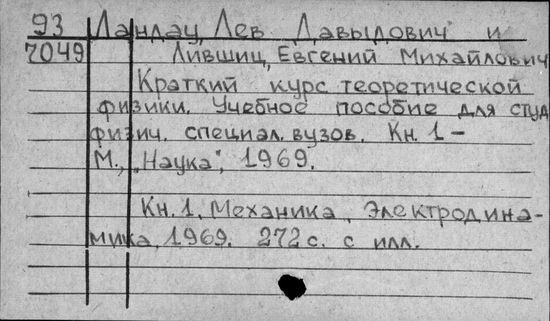 93 Ландау, Лев Давыдович и
7049 Лившиц, Евгений Михайлович
Краткий курс теоретической
физики. Учебное пособие для студ
физич. специал. вузов. Кн. 1 –
М., "Наука", 1969.
Кн. 1. Механика. Электродина-
мика, 1969. 272 с. с илл.